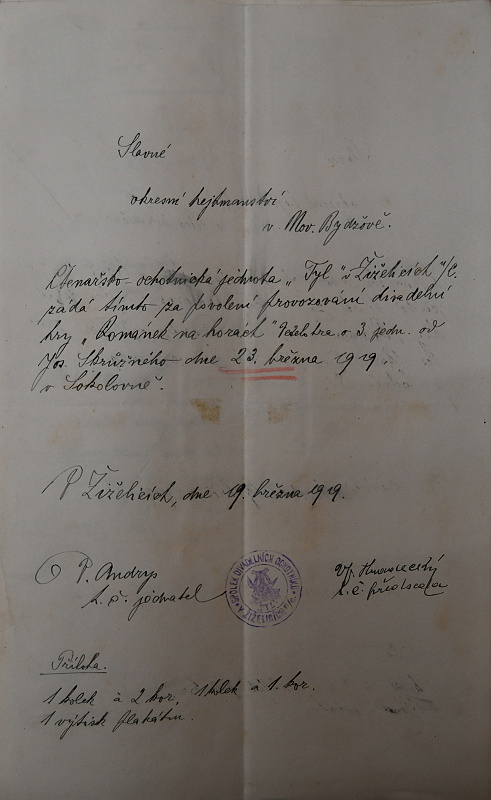 Slavné
okresní hejtmanství
v Nov. Bydžově.
Čtenářsko-ochotnická jednota „Tyl“ v Žiželicích n/C.
žádá tímto za povolení provozování divadelní
hry „Románek na horách“ veselohra o 3. jedn. od
Jos. Skružného dne 23. března 1919.
v Sokolovně.
V Žiželicích, dne 19. března 1919.
P. Andrys
t. č. jednatel
t. č. předseda
SPOLEK DIVADELNÍCH OCHOTNÍKŮ
V ŽIŽELICÍCH
Příloha.
1 kolek à 2 kor., 1 kolek à 1. kor.
1 výtisk plakátu.